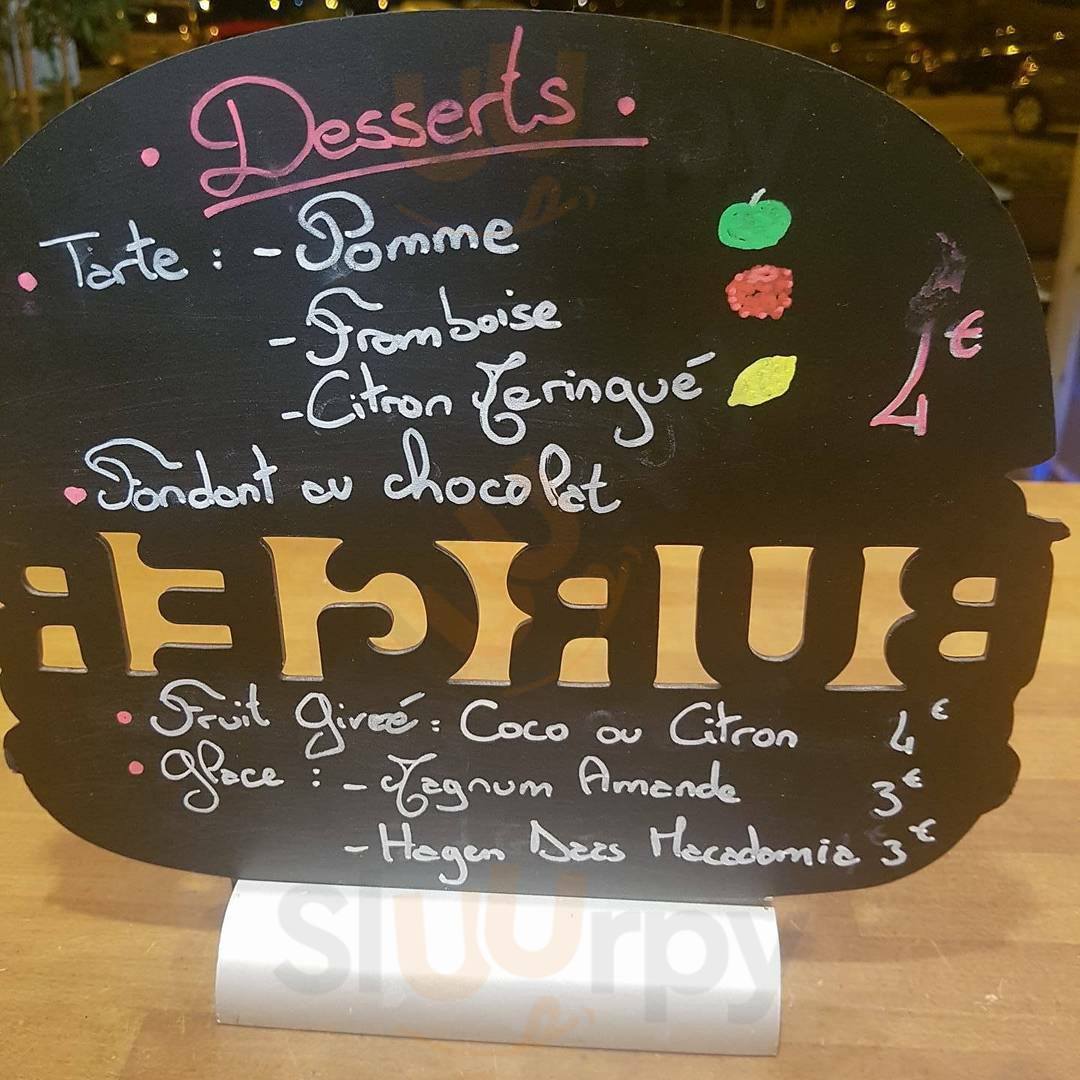 Desserts
Tarte : - Pomme
- Framboise
- Citron Meringué
4€
Fondant au chocolat
Fruit Givré : Coco ou Citron 4€
Glace : - Magnum Amande 3€
- Hagen Dazs Macadamia 3€
sluurpy